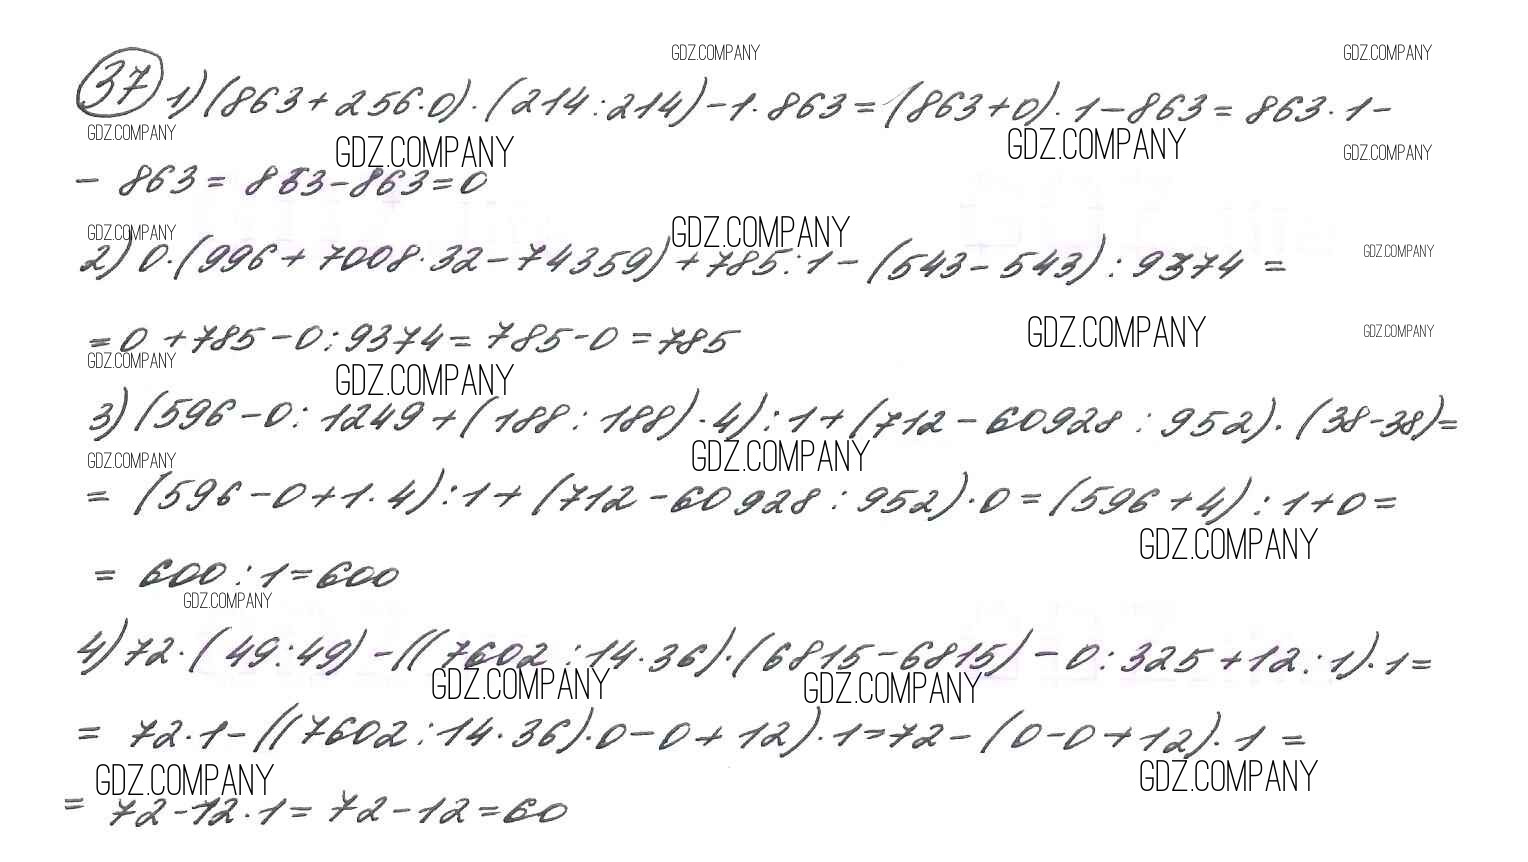 GDZ.COMPANY GDZ.COMPANY
37 1) (863 + 256 · 0) · (214 : 214) - 1 · 863 = (863 + 0) · 1 - 863 = 863 · 1 -
GDZ.COMPANY GDZ.COMPANY GDZ.COMPANY GDZ.COMPANY
- 863 = 863 - 863 = 0
GDZ.COMPANY GDZ.COMPANY GDZ.COMPANY
2) 0 · (996 + 7008 · 32 - 74359) + 785 : 1 - (543 - 543) : 9374 =
= 0 + 785 - 0 : 9374 = 785 - 0 = 785
GDZ.COMPANY GDZ.COMPANY
GDZ.COMPANY GDZ.COMPANY
3) (596 - 0 : 1249 + (188 : 188) · 4) : 1 + (712 - 60928 : 952) · (38 - 38) =
GDZ.COMPANY GDZ.COMPANY
= (596 - 0 + 1 · 4) : 1 + (712 - 60928 : 952) · 0 = (596 + 4) : 1 + 0 =
GDZ.COMPANY
= 600 : 1 = 600
GDZ.COMPANY
4) 72 · (49 : 49) - ((7602 : 14 · 36) · (6815 - 6815) - 0 : 325 + 12 : 1) · 1 =
GDZ.COMPANY GDZ.COMPANY
= 72 · 1 - ((7602 : 14 · 36) · 0 - 0 + 12) · 1 = 72 - (0 - 0 + 12) · 1 =
GDZ.COMPANY GDZ.COMPANY
= 72 - 12 · 1 = 72 - 12 = 60